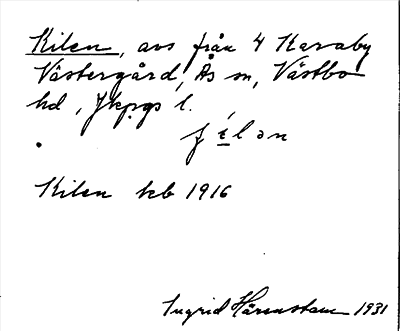 Kilen, avs från 4 Karaby
Västergård, Ås sn, Västbo
hd, Jkpgs l.
fílən
Kilen keb 1916
Ingrid Hårenstam 1931